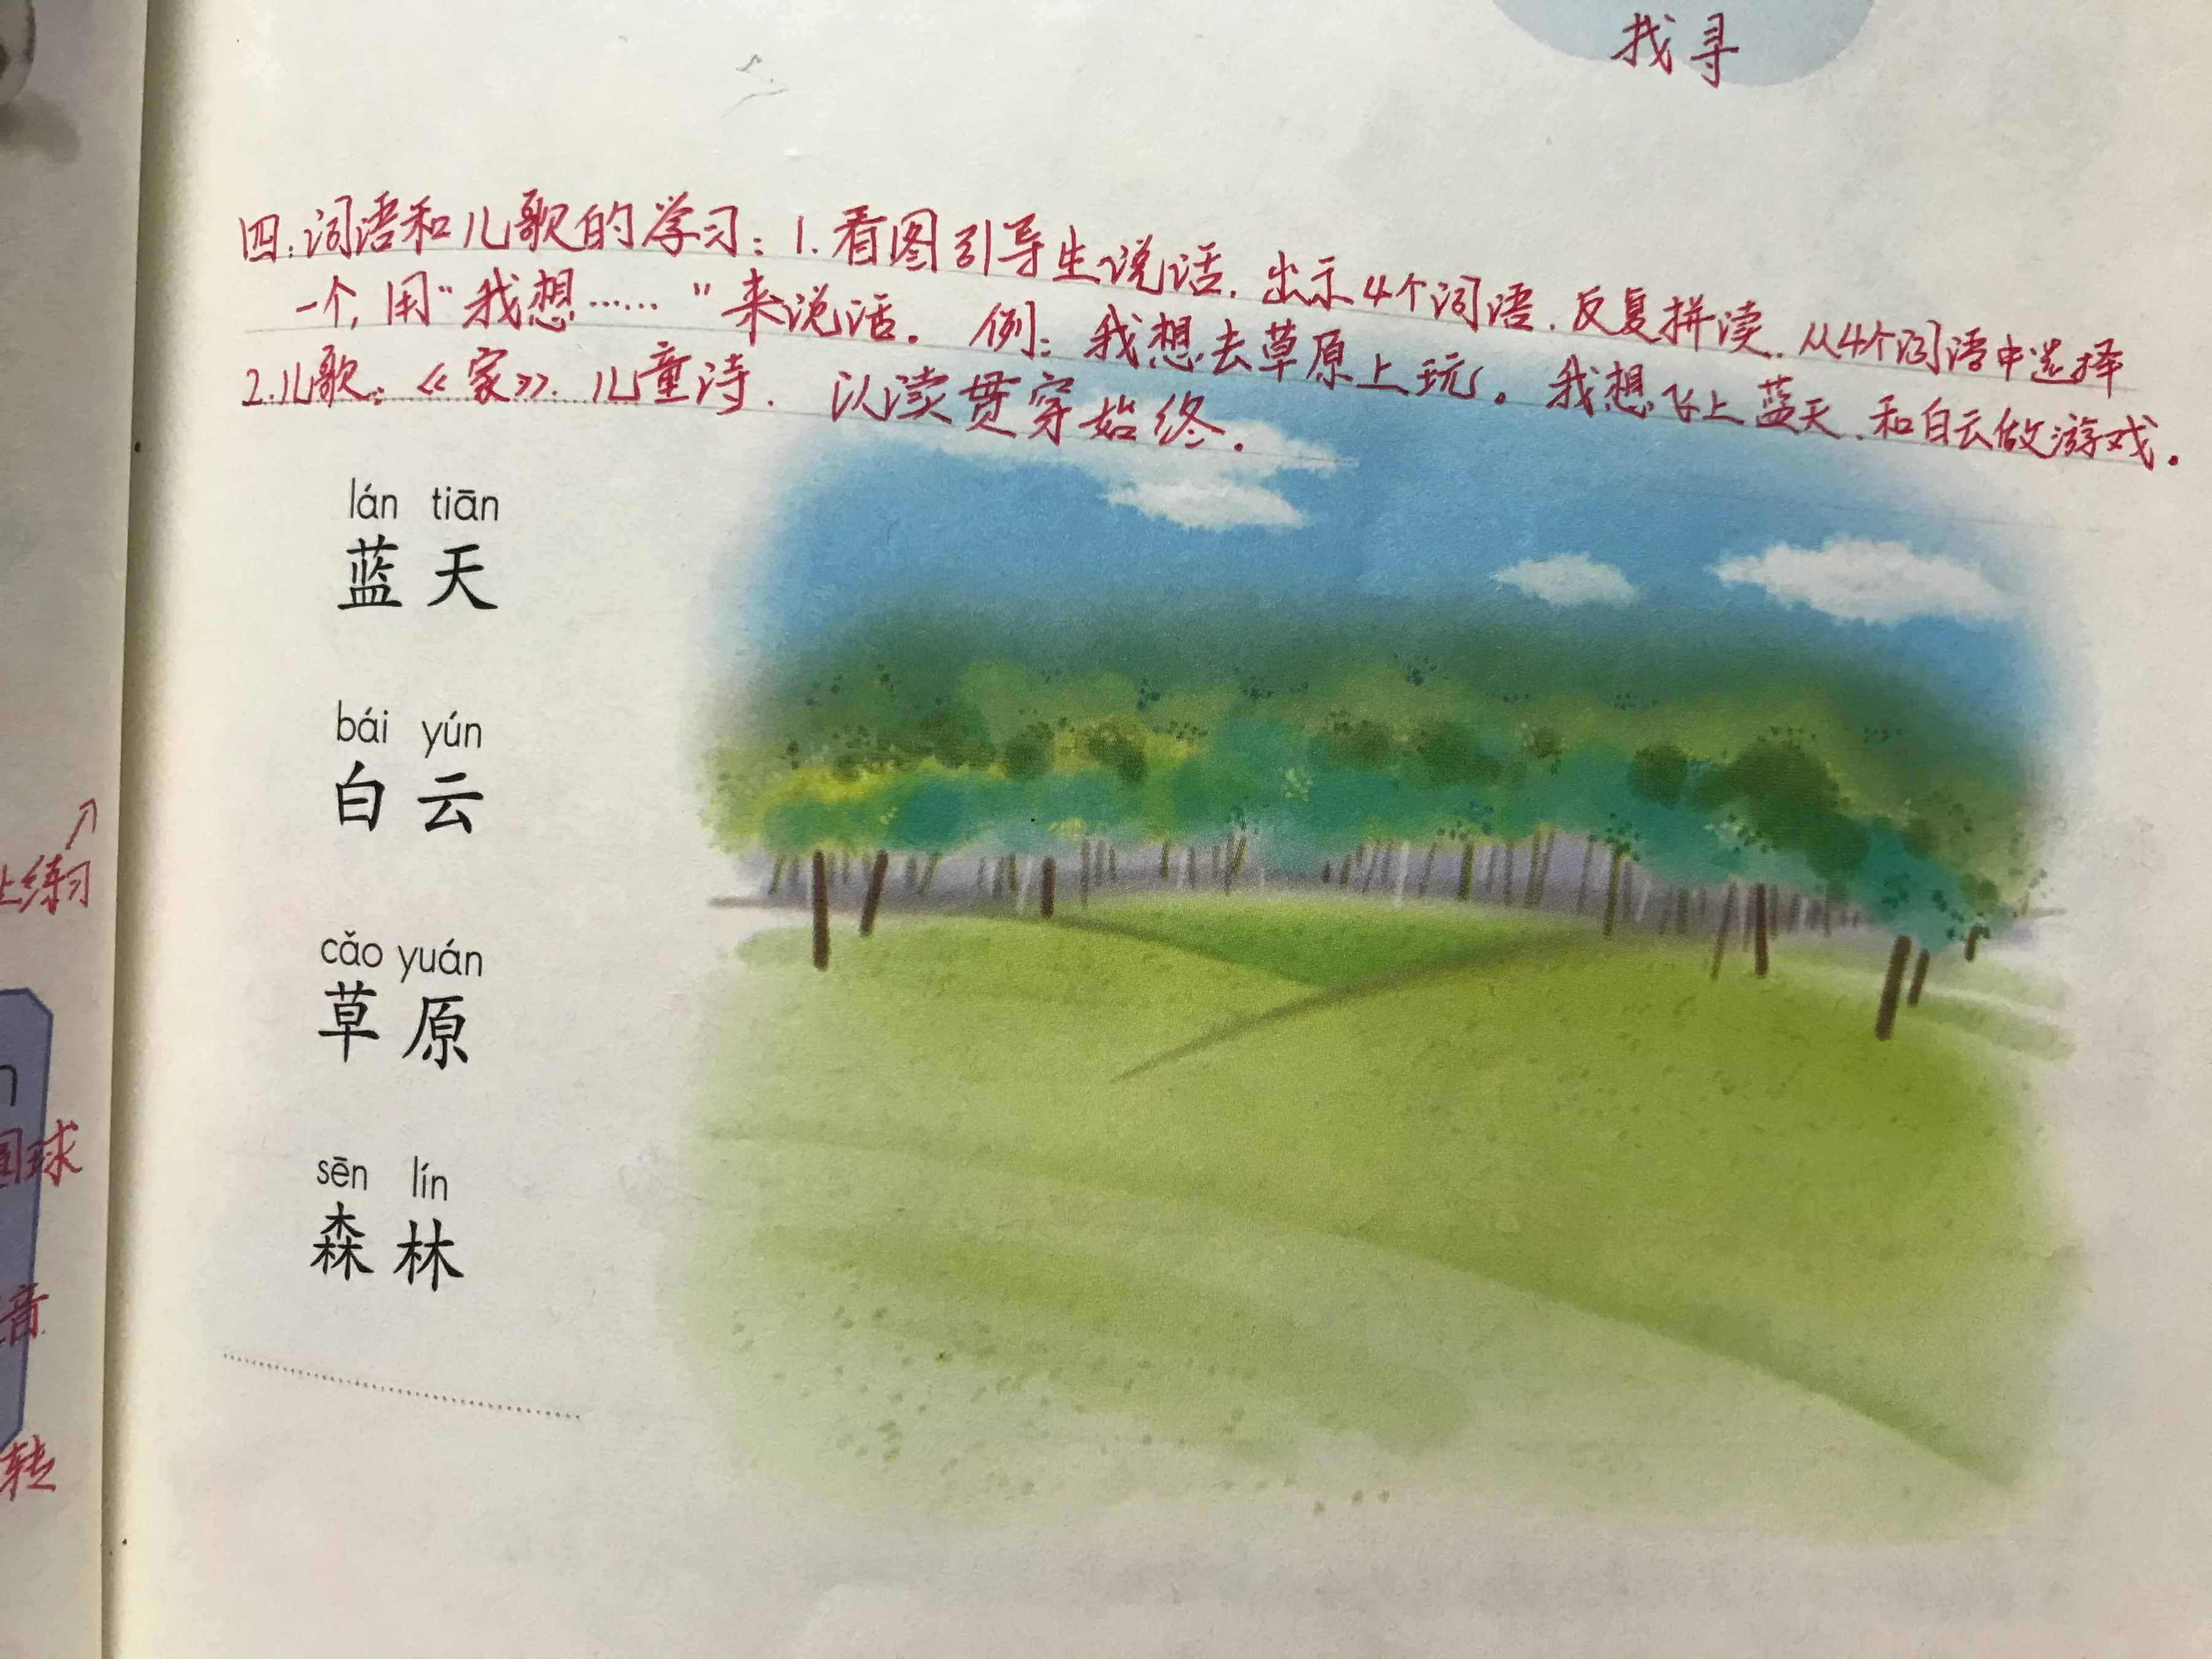 找寻
四:词语和儿歌的学习:1.看图引导生说话.出示4个词语.反复拼读.从4个词语中选择
一个,用“我想……”来说话。例:我想去草原上玩。我想飞上蓝天.和白云做游戏。
2.儿歌:《家》.儿童诗.以读贯穿始终.
lán tiān
蓝天
bái yún
白云
cǎo yuán
草原
sēn lín
森林
上练习
圆球
音
转